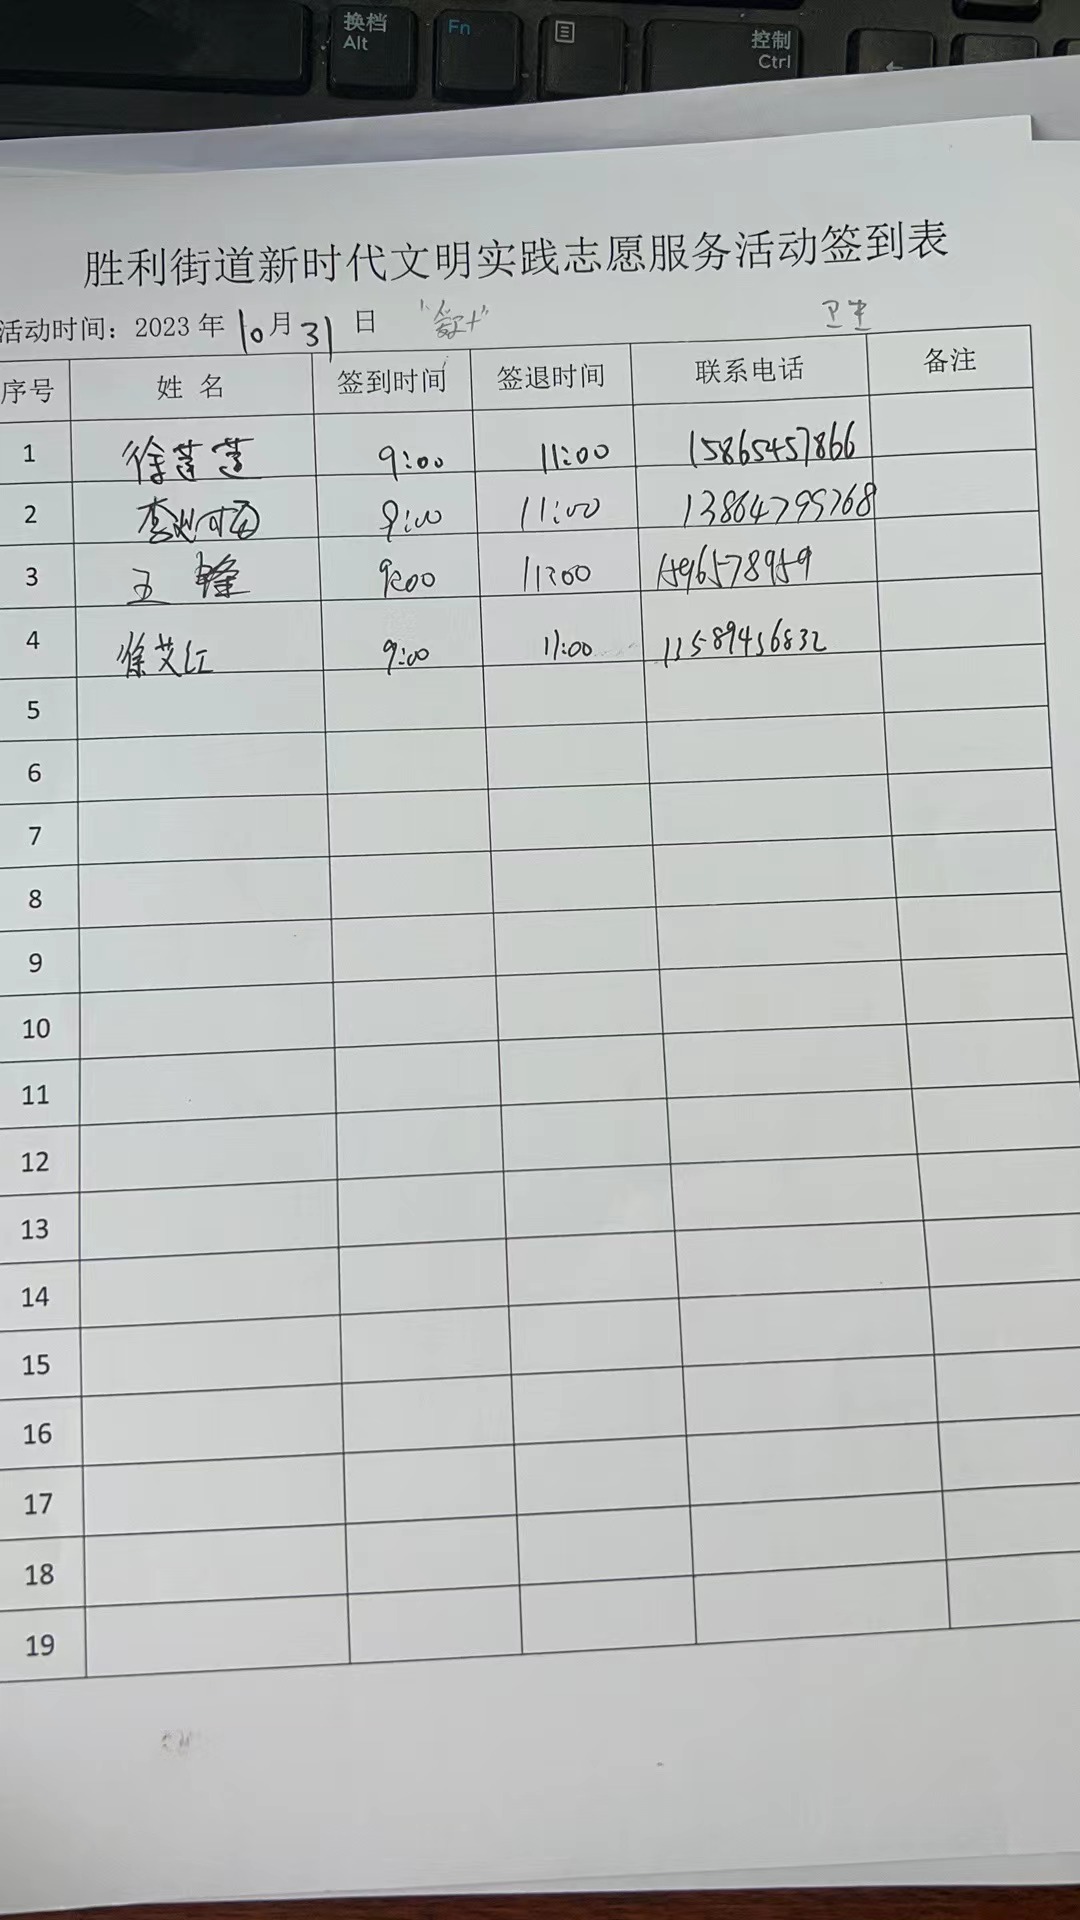 换档
Alt
Fn
控制
Ctrl
胜利街道新时代文明实践志愿服务活动签到表
活动时间：2023 年 10 月 31 日 卫生
序号 姓 名 签到时间 签退时间 联系电话 备注
1 徐莲莲 9:00 11:00 15865457866
2 9:00 11:00 13864799768
3 王 锋 9:00 11:00 1596578959
4 徐艾红 9:00 11:00 11589456832
5
6
7
8
9
10
11
12
13
14
15
16
17
18
19